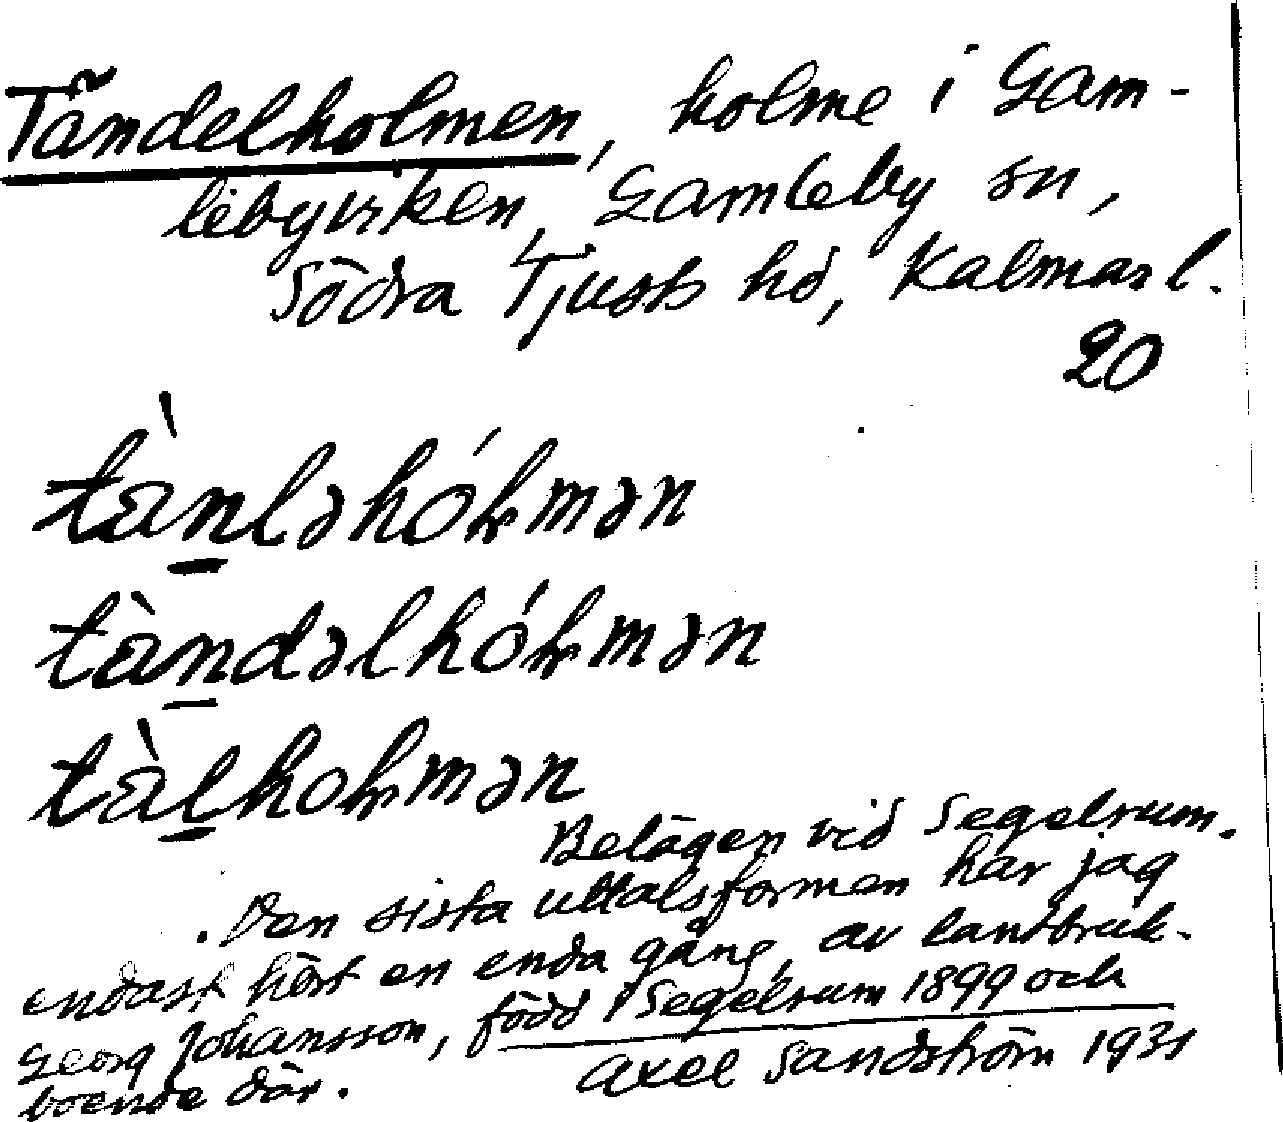 Tãndelholmen, holme i Gam-
lebyviken, Gamleby sn,
Södra Tjusts hd, Kalmar l.
20
tàn̲ləhólmən
tàn̲dəlhólmən
tàl̲holmən
Belägen vid Segelrum.
Den sista uttalsformen har jag
endast hört en enda gång, av lantbruk.
Georg Johansson, född i Segelrum 1899 och
boende där.
Axel Sandström 1931